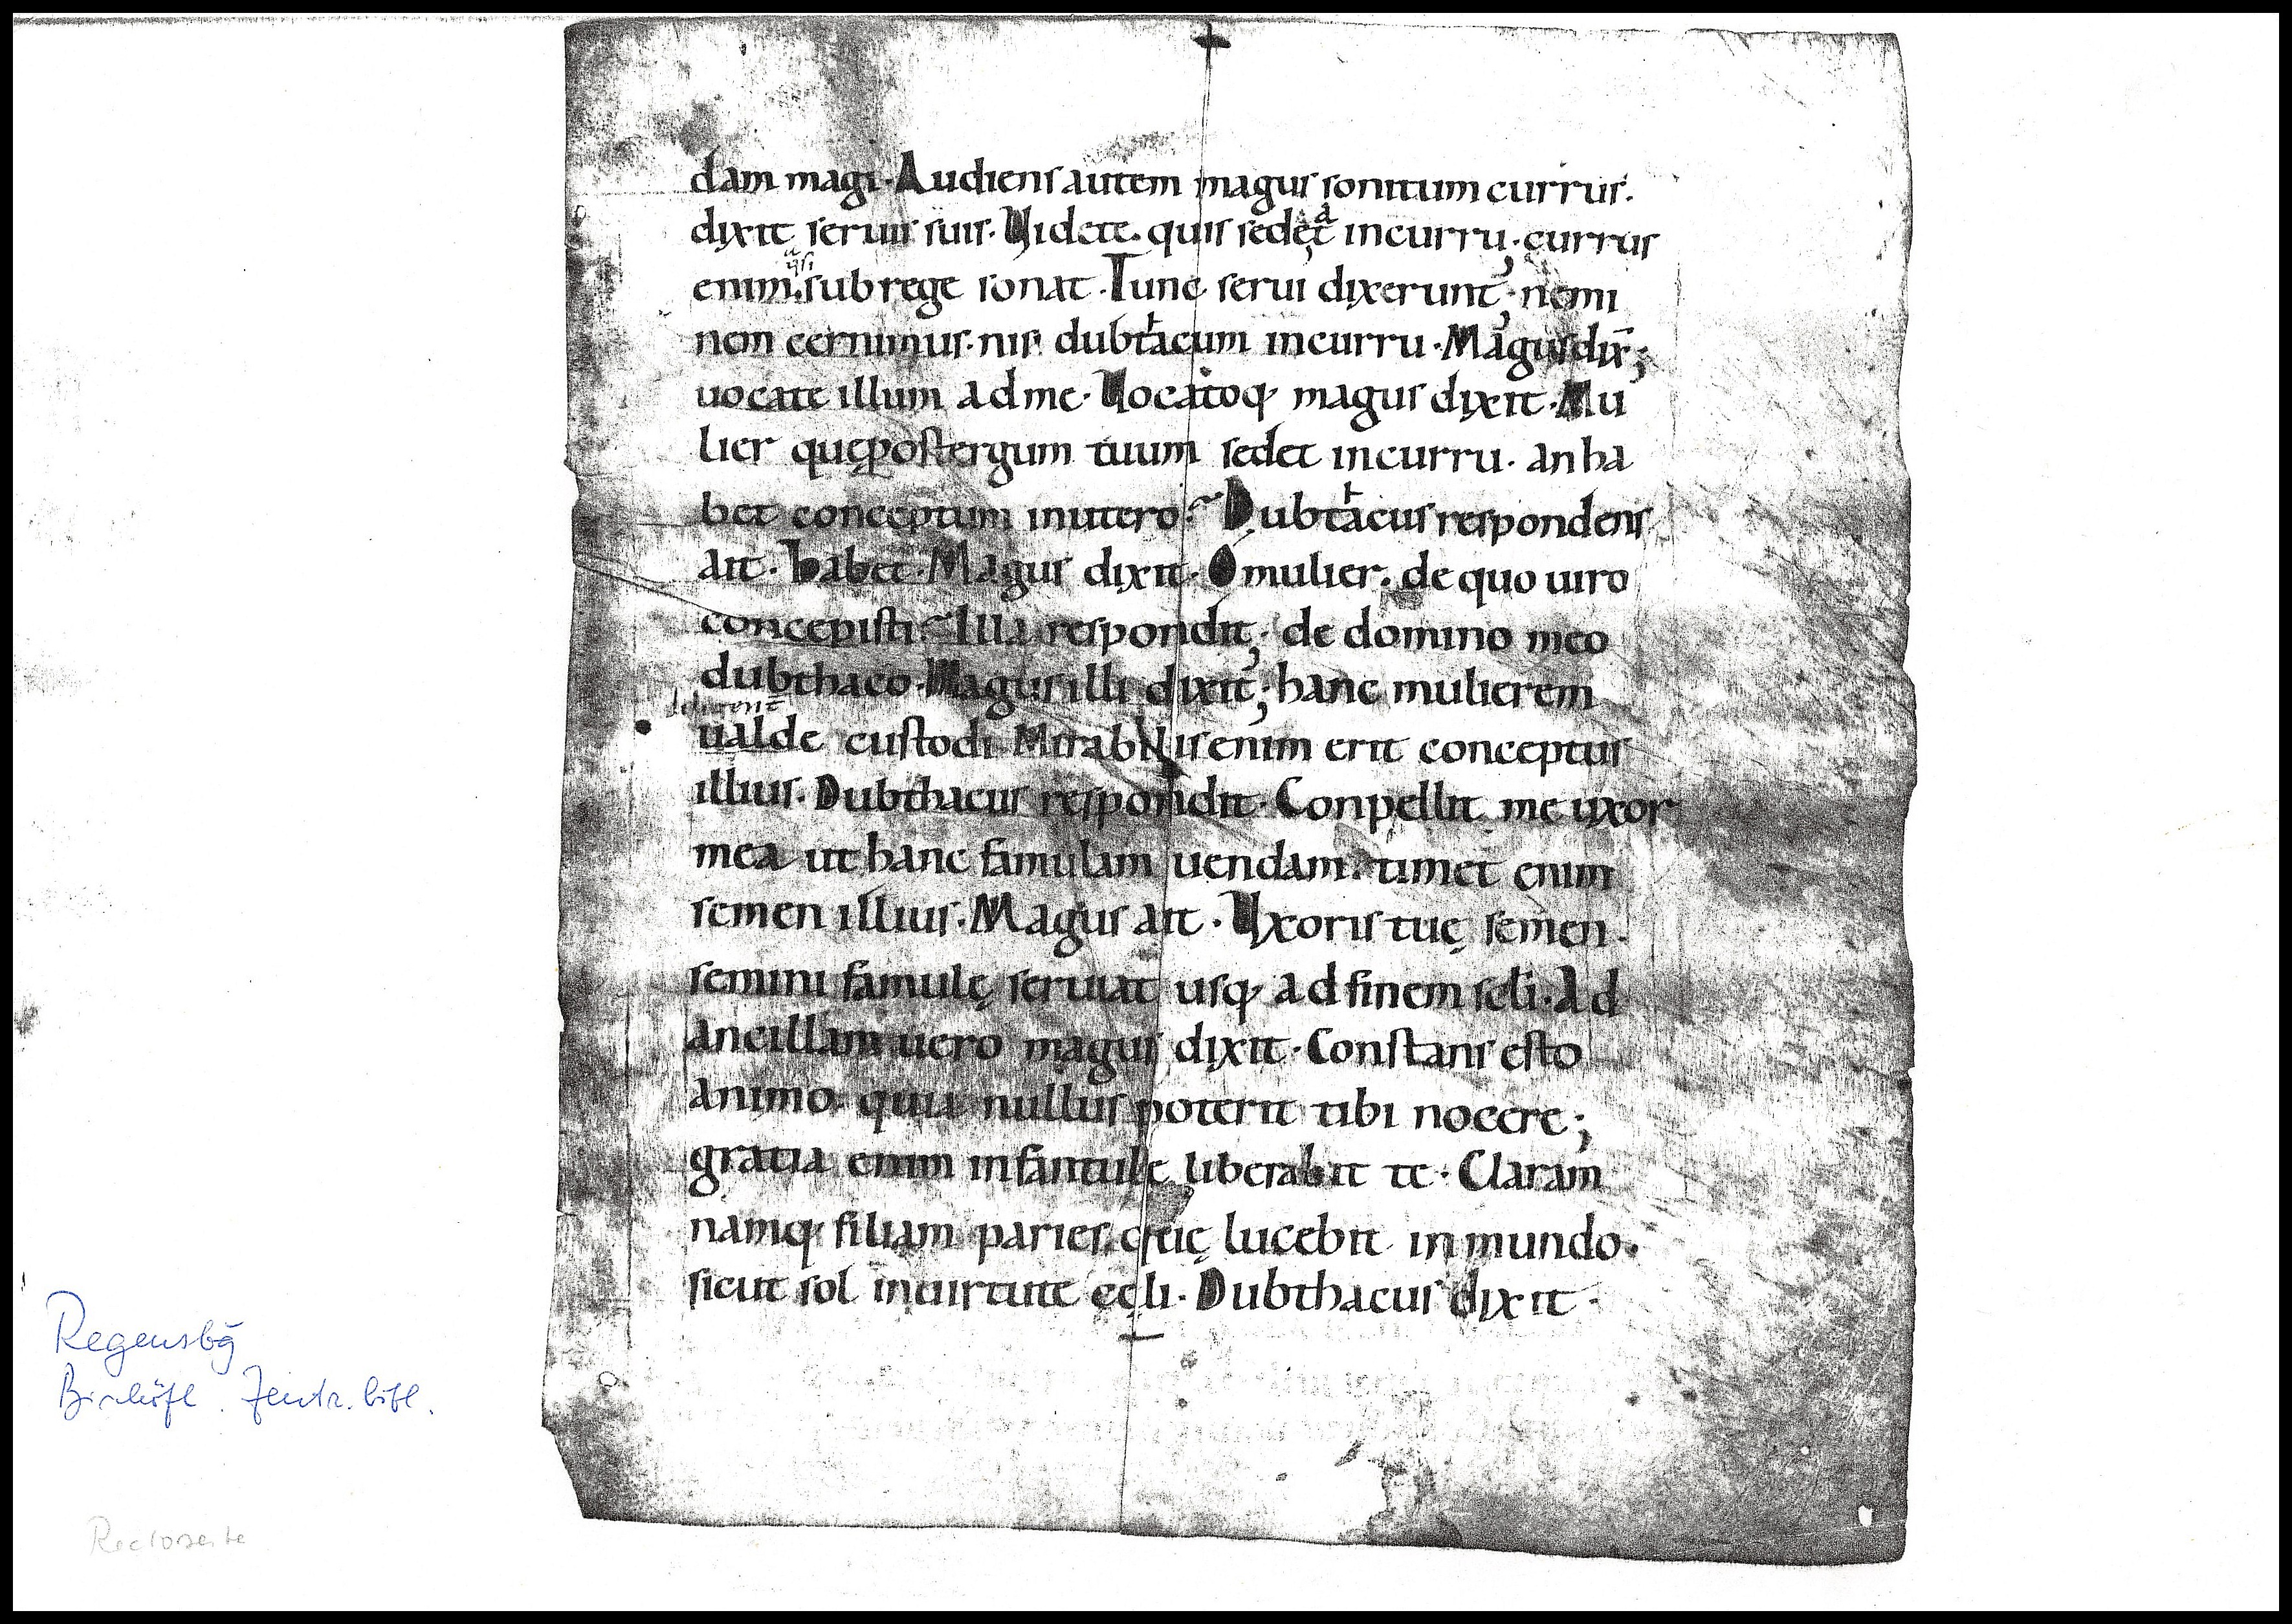 dam magi· Audiens autem magus sonitum currus.
dixit seruis suis· Videte· quis sedet in curru; currus
a
enim sub rege sonat· Tunc serui dixerunt; nemi
qsi
nem cernimus· nisi dubtacum in curru· Magus dix̄;
uocate illum ad me· Vocatoq· magus dixit· Mu
lier quę post tergum tuum sedet in curru· an ha
bet conceptum in utero? Dubtacus respondens
ait· habet· Magus dixit· O mulier· de quo uiro
concepisti? Illa respondit; de domino meo
dubthaco· Magus illi dixit; hanc mulierem
diligent
ualde custodi· Mirabilis enim erit conceptus
illius· Dubthacus respondit· Conpellit me uxor
mea ut hanc famulam uendam· timet enim
semen illius· Magus ait· Vxoris tuę semen·
semini famulę seruiat usq· ad finem scli· Ad
ancillam uero magus dixit· Constans esto
animo· quia nullus poterit tibi nocere;
gratia enim infantulę liberabit te· Claram
namq· filiam paries· quę lucebit in mundo·
sicut sol in uirtute cęli· Dubthacus dixit·
Regensbg
Bischöfl. Zentr. bibl.
Rectoseite